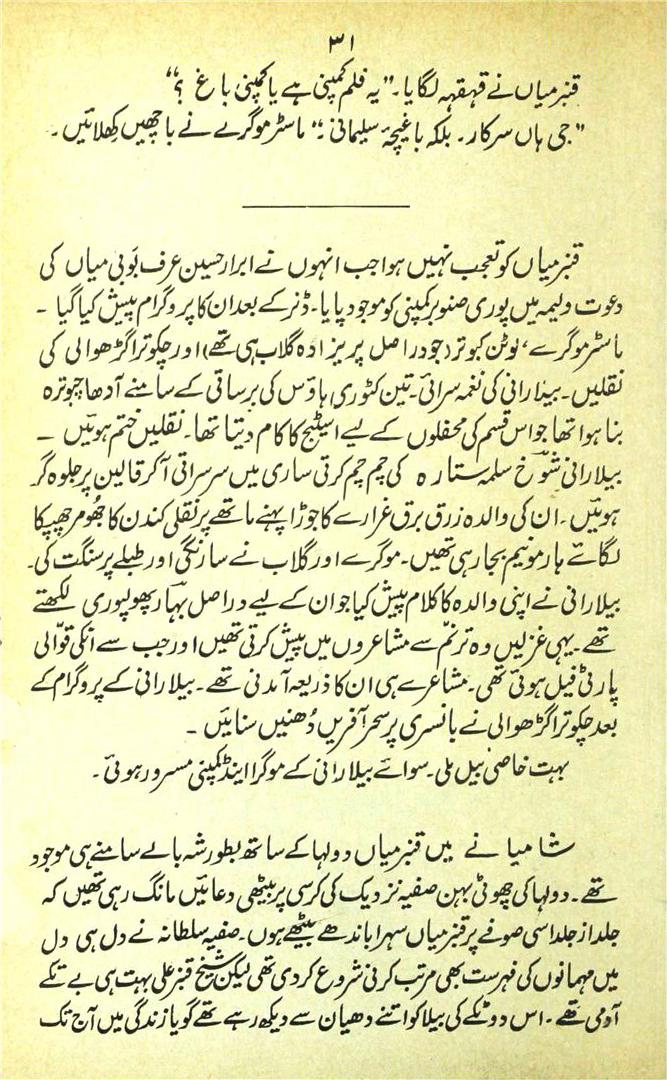 ۳۱
قنبر میاں نے قہقہہ لگایا۔ "یہ فلم کمپنی ہے یا کمپنی باغ ؟"
"جی ہاں سرکار۔ بلکہ باغیچۂ سلیمانی۔" ماسٹر موگرے نے باچھیں کھلائیں۔
قنبر میاں کو تعجب نہیں ہوا جب انہوں نے ابرار حسین عرف بَوبی میاں کی
دعوت ولیمہ میں پوری صنوبر کمپنی کو موجود پایا۔ ڈنر کے بعد ان کا پروگرام پیش کیا گیا ۔
ماسٹر موگرے، لوٹن کبوتر (جو دراصل پریزادہ گلاب ہی تھے) اور چکوترا گڑھوالی کی
نقلیں۔ بیلا رانی کی نغمہ سرائی۔ تین کٹوری ہاؤس کی برساتی کے سامنے آدھا چبوترہ
بنا ہوا تھا جو اس قسم کی محفلوں کے لیے اسٹیج کا کام دیتا تھا۔ نقلیں ختم ہوئیں ۔
بیلا رانی شوخ سلمہ ستارہ کی چم چم کرتی ساری میں سرسراتی آکر قالین پر جلوہ گر
ہوئیں۔ ان کی والدہ زرق برق غرارے کا جوڑا پہنے ماتھے پر نقلی کندن کا جھومر چھپکا
لگائے ہارمونیم بجا رہی تھیں۔ موگرے اور گلاب نے سارنگی اور طبلے پر سنگت کی۔
بیلا رانی نے اپنی والدہ کا کلام پیش کیا جو ان کے لیے دراصل بہار پھولپوری لکھتے
تھے۔ یہی غزلیں وہ ترنّم سے مشاعروں میں پیش کرتی تھیں اور جب سے انکی قوّالی
پارٹی فیل ہوئی تھی۔ مشاعرے ہی ان کا ذریعہ آمدنی تھے۔ بیلا رانی کے پروگرام کے
بعد چکوترا گڑھوالی نے بانسری پر سحر آفریں دُھنیں سنائیں ۔
بہت خاصی بیل ملی۔ سوائے بیلا رانی کے موگرا اینڈ کمپنی مسرور ہوئی۔
شامیانے میں قنبر میاں دولہا کے ساتھ بطور شہ بالے سامنے ہی موجود
تھے۔ دولہا کی چھوٹی بہن صفیہ نزدیک کی کرسی پر بیٹھی دعائیں مانگ رہی تھیں کہ
جلد از جلد اسی صوفے پر قنبر میاں سہرا باندھے بیٹھے ہوں۔ صفیہ سلطانہ نے دل ہی دل
میں مہمانوں کی فہرست بھی مرتب کرنی شروع کردی تھی لیکن شیخ قنبر علی بہت ہی بے تکے
آدمی تھے۔ اس دو ٹکے کی بیلا کو اتنے دھیان سے دیکھ رہے تھے گویا زندگی میں آج تک